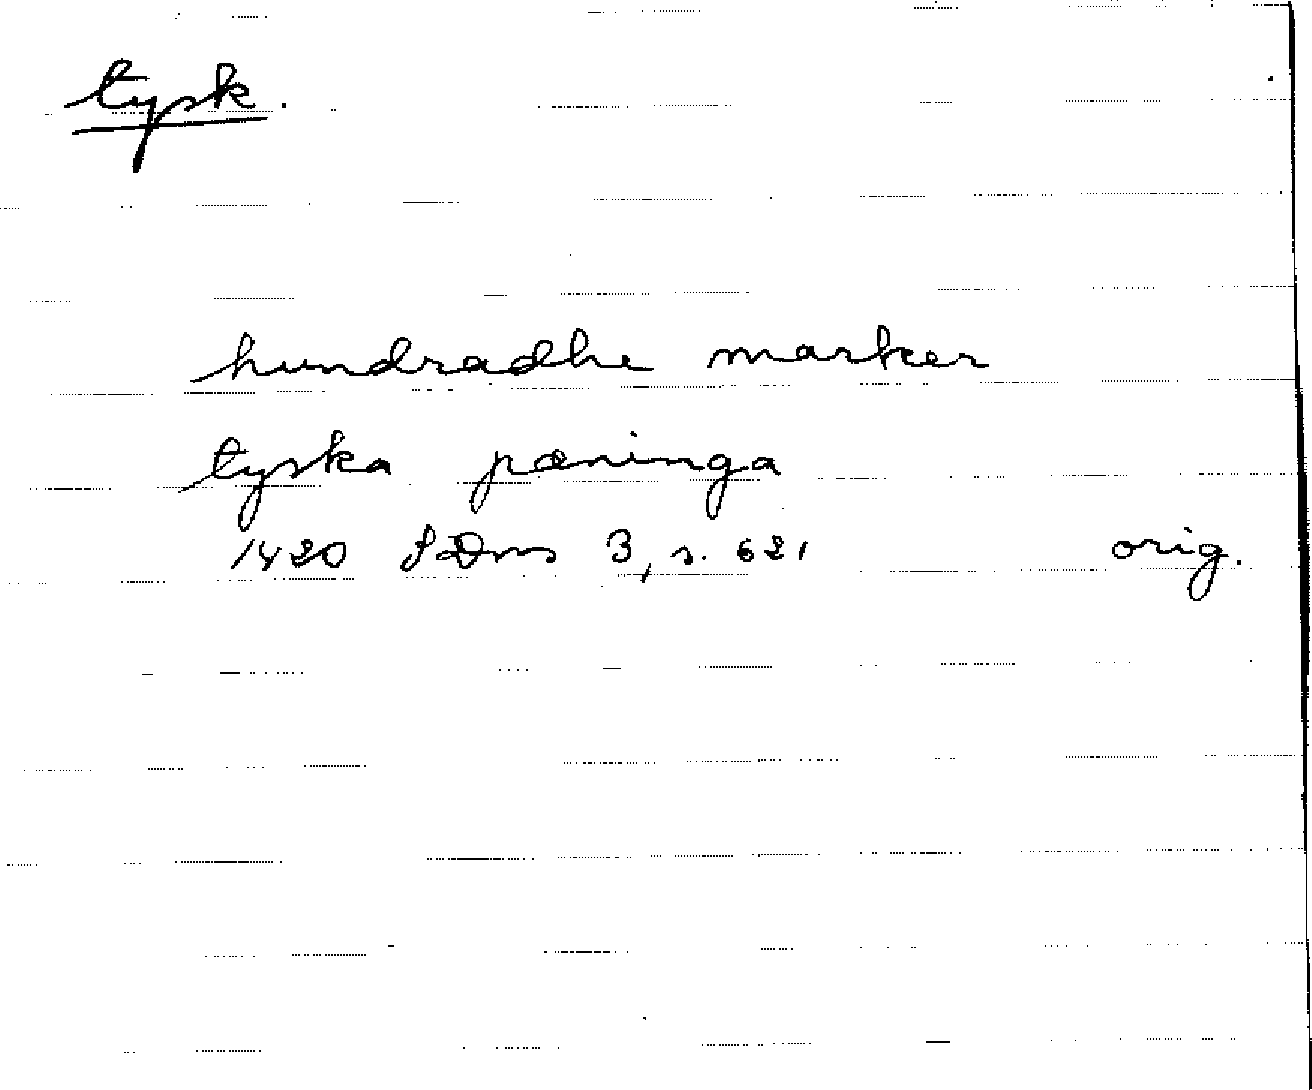 tysk.
hundradhe marker
tyska pæninga
1420 SDns 3, s. 621 orig.